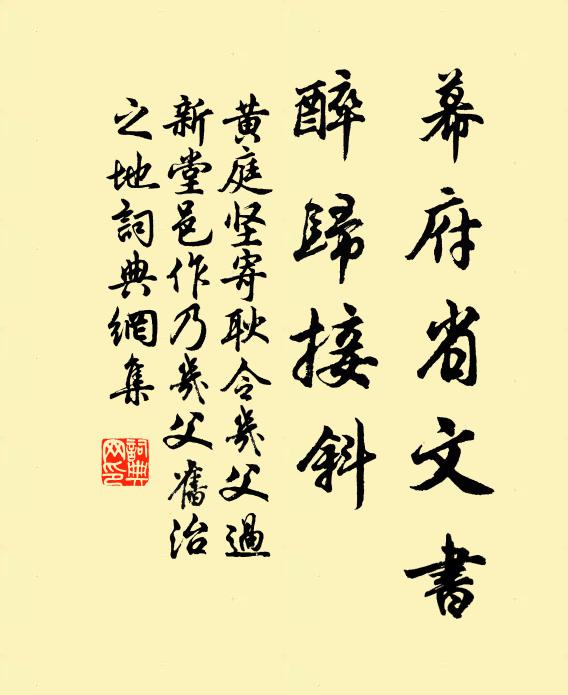 幕府省文書
醉歸接斜
黃庭坚寄耿令幾父過
新堂邑作乃幾父舊治
之地詞典網集
詞典
网印